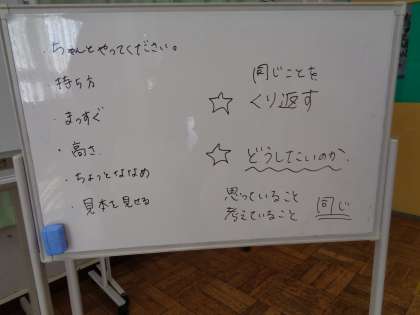 ・ちゃんとやってください。
持ち方
・まっすぐ
・高さ
・ちょっとななめ
・見本を見せる
同じことを
☆くり返す
☆どうしたいのか。
思っていること
考えていること 同じ